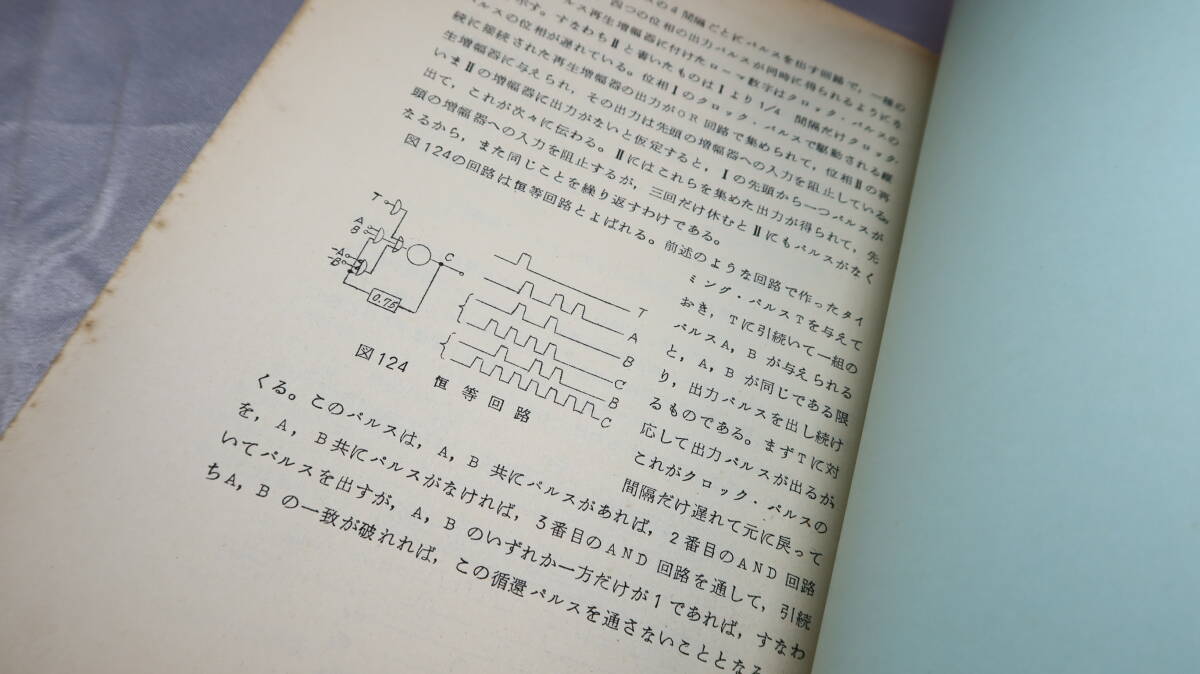 スの4間隔ごとにパルスを出す回路で，一種の
四つの位相の出力パルスが同時に得られるようにな
ルス再生増幅器に付けたローマ数字はクロック・パルスの
示す。すなわちⅡと書いたものはⅠより1/4 間隔だけクロック・
ルスの位相が遅れている。位相Ⅰのクロック・パルスで駆動される縦
続に接続された再生増幅器の出力がOR回路で集められて，位相Ⅱの再
生増幅器に与えられ，その出力は先頭の増幅器への入力を阻止している。
いまⅡの増幅器に出力がないと仮定すると，Ⅰの先頭から一つパルスが
出て，これが次々に伝わる。Ⅱにはこれらを集めた出力が得られて，先
頭の増幅器への入力を阻止するが，三回だけ休むとⅡにもパルスがなく
なるから，また同じことを繰り返すわけである。
図124の回路は恒等回路とよばれる。前述のような回路で作ったタイ
ミング・パルスTを与えて
おき，Tに引続いて一組の
パルスA，Bが与えられる
と，A，Bが同じである限
り，出力パルスを出し続け
るものである。まずTに対
応して出力パルスが出るが，
これがクロック・パルスの
間隔だけ遅れて元に戻って
T
A
B
-A
-B
C
0.75
T
A
B
C
B
C
図124 恒等回路
くる。このパルスは，A，B共にパルスがあれば，2番目のAND回路
を，A，B共にパルスがなければ，3番目のAND回路を通して，引続
いてパルスを出すが，A，Bのいずれか一方だけが1であれば，すなわ
ちA，Bの一致が破れれば，この循還パルスを通さないこととなる